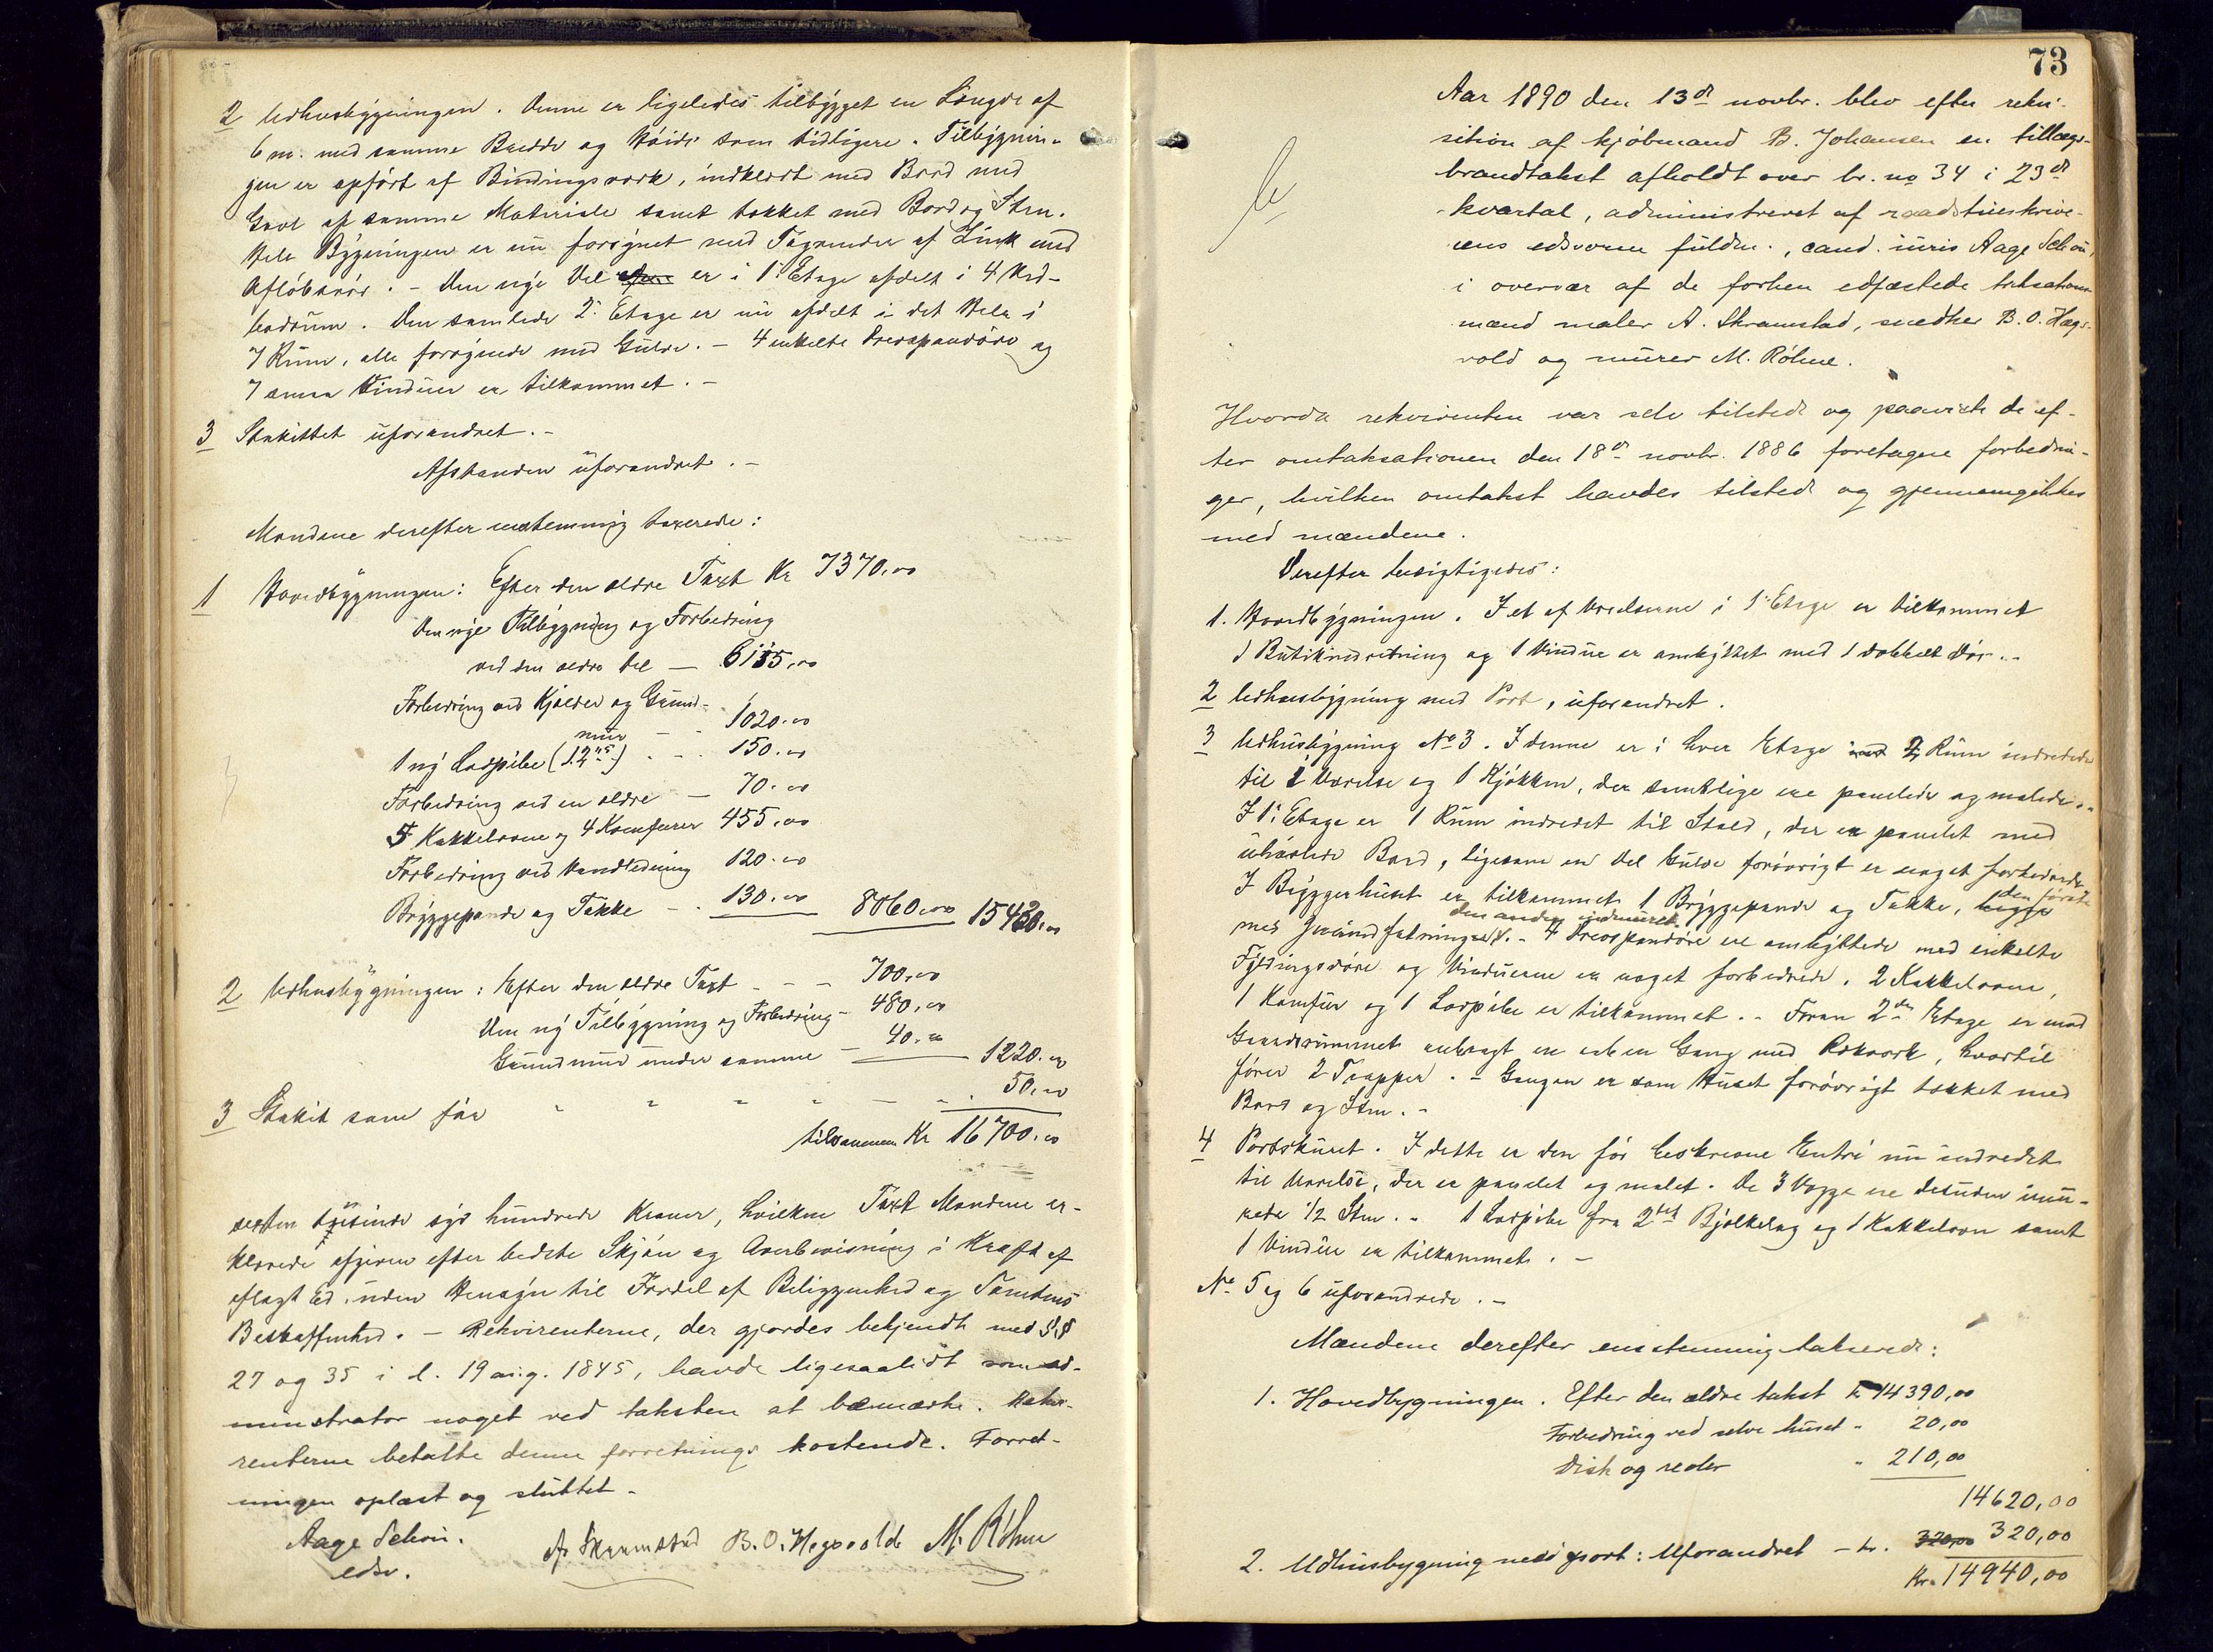 2 Udhusbygningen. Denne er ligeledes tilbygget en Længde af
6 m. med samme Bredde og Høide som tidligere. Tilbygnin-
gen er opført af Bindingsværk, indklædt med Bord med
Gavl af samme Materiale samt tækket med Bord og Sten.
Hele Bygningen er nu forsynet med Tagrender af Zink med
Afløbsrør. - Den nye Del er i 1. Etage afdelt i 4 Ved-
bodrum. Den samlede 2. Etage er nu afdelt i det Hele i
7 Rum, alle forsynede med Gulve. - 4 enkelte Presspandøre og
7 smaa Vinduer er tilkommet. -
3 Stakittet uforandret. -
Afstanden uforandret. -
Mændene derefter enstemmig taxerede:
1 Hovedbygningen: Efter den ældre Taxt Kr 7370,00
Den nye Tilbygning og Forbedring
ved den ældre Del — 6115,00
Forbedring ved Kjælder og Grund-
mur - - 1020.00
1 ny Ladpibe (12 ) - - 150.00
Forbedring ved en ældre — 70.00
5 Kakkelovne og 4 Komfurer 455,00
Forbedring ved Vandledning 120.00
Bryggepande og Takke - 130.00 8060,00 15430,00
2 Udhusbygningen: Efter den ældre Taxt - - - 700,00
Den ny Tilbygning og Forbedring - 480,00
Grundmur under samme — 40.00 1220.00
3 Stakit som før - - - - - - 50,00
tilsammen Kr 16700.00
sexten tusinde syv hundrede Kroner, hvilken Taxt Mændene er-
klærede afgiven efter bedste Skjøn og Overbevisning i Kraft af
aflagt Ed, uden Hensyn til Fordel af Beliggenhed og Tomtens
Beskaffenhed. - Rekvirenterne, der gjordes bekjendt med §§
27 og 35 i l. 19 aug. 1845, havde ligesaalidt som ad-
ministrator noget ved taksten at bemærke. Rekvi-
renterne betalte denne forretnings kostende. Forret-
ningen oplæst og sluttet -
Aage Schou. A. Skramstad B. O. Hegsvold M. Röhne
edsv.
73
Aar 1890 den 13de novbr. blev efter rekvi-
sition af kjøbmand B. Johansen en tillægs-
brandtakst afholdt over br. no 34 i 23de
kvartal, administreret af raadstueskrive-
rens edsvorne fuldm., cand. iuris Aage Schou,
i overvær af de forhen edfæstede taksations-
mænd maler A. Skramstad, snedker B. O. Hægs-
vold og murer M. Röhne.
Hvorda rekvirenten var selv tilstede og paaviste de ef-
ter omtaksationen den 18de novbr. 1886 foretagne forbedrin-
ger, hvilken omtakst havdes tilstede og gjennemgikkes
med mændene.
Derefter besigtigedes:
1. Hovedbygningen. I et af Værelserne i 1. Etage er tilkommet
1 Butikindretning og 1 Vindue er ombyttet med 1 dobbelt Dør. -
2 Udhusbygning med Port, uforandret.
3 Udhusbygning No 3. I denne er i hver Etage 2 Rum indredede
til 1 Værelse og 1 Kjøkken, der samtlige ere panelede og malede. -
I 1. Etage er 1 Rum indredet til Stald, der er panelet med
uhøvlede Bord, ligesom en Del Gulve forøvrigt er noget forbedrede.
I Bryggerhuset er tilkommet 1 Bryggepande og Takke, den første
med Jernindfatning, den anden indmuret. - 4 Presspandøre ere ombyttede med enkelte
Fyldingsdøre og Vinduerne er noget forbedrede. 2 Kakkelovne,
1 Komfur og 1 Ladpibe er tilkommet. - Foran 2den Etage er mod
Gaardsrummet anbragt en aaben Gang med Rækværk, hvortil
fører 2 Trapper. - Gangen er som Huset forøvrigt tækket med
Bord og Sten. -
4 Portskuret. I dette er den før beskrevne Entré nu indredet
til Værelse, der er panelet og malet. De 3 Vægge ere desuden inmu-
rede 1/2 Sten. - 1 Ladpibe fra 2det Bjelkelag og 1 Kakkelovn samt
1 Vindue er tilkommet. -
No 5 og 6 uforandrede. -
Mændene derefter enstemmig takserede:
1. Hovedbygningen. Efter den ældre takst kr 14390,00
Forbedring ved selve huset - 20,00
Disk og reoler " 210,00
14620,00
2. Udhusbygning med port: Uforandret - kr. 320,00 320,00
Kr. 14940,00